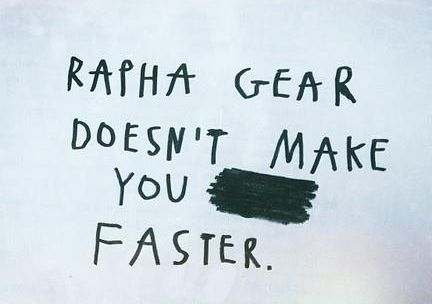 RAPHA GEAR
DOESN'T MAKE
YOU
FASTER.